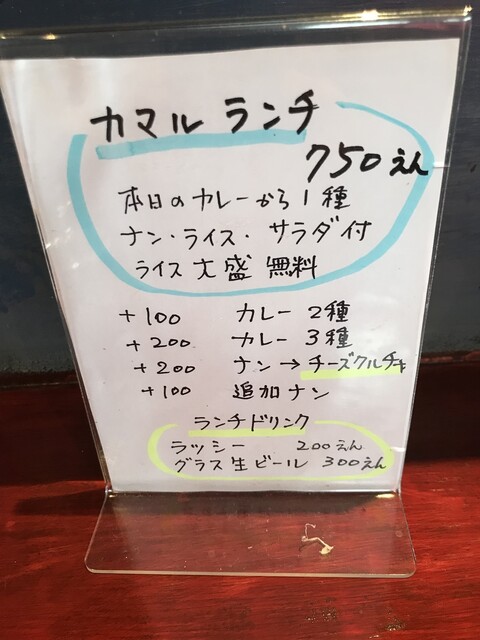 カマル ランチ
750えん
本日のカレーから1種
ナン・ライス・サラダ付
ライス大盛 無料
+100 カレー 2種
+200 カレー 3種
+200 ナン→チーズクルチャ
+100 追加ナン
ランチドリンク
ラッシー 200えん
グラス生ビール 300えん